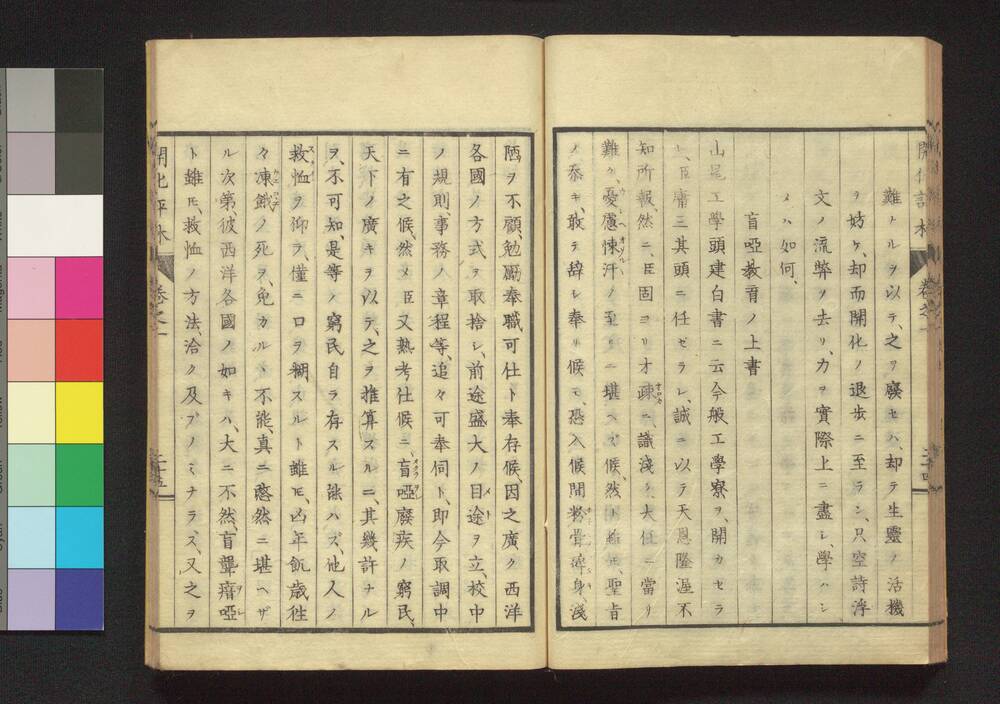 難トルヲ以テ、之ヲ廢セハ、却テ生靈ノ活機
ヲ妨ケ、却而開化ノ退歩ニ至ラン、只空詩浮
文ノ流弊ヲ去リ、力ヲ實際上ニ盡シ、學ハシ
メハ如何、
盲啞教育ノ上書
山尾工學頭建白書ニ云今般工學寮ヲ、開カセラ
レ、臣庸三其頭ニ任ゼラレ、誠ニ以テ天恩隆渥不
知所報然ニ、臣固ヨリオ疎ニ、識淺ク、大任ニ當リ
難ク、憂慮悚汗ノ至リニ堪ヘズ候、然トモ、聖旨
ノ忝キ、敢テ辞レ奉リ候モ、恐入候間粉骨碎身、淺
陋ヲ不顧、勉勵奉職、可仕ト奉存候、因之廣ク西洋
各國ノ方式ヲ取捨シ、前途盛大ノ目途ヲ立、校中
ノ規則、事務ノ章程等、追々可奉伺ト、即今取調中
ニ有之候、然メ臣又熟考仕候ニ、盲啞廢疾ノ窮民、
天下ノ廣キヲ以テ、之ヲ推算スルニ、其幾許ナル
ヲ、不可知、是等ノ窮民自ラ存スル能ハズ、他人ノ
救恤ヲ仰ラ、僅ニロヲ糊スルト雖𪜈、凶年飢歳徃
々凍餓ノ死ヲ、免カルヽ不能、真ニ愍然ニ堪ヘザ
ル次第、彼西洋各國ノ如キハ、大ニ不然、盲聾瘖啞
ト雖𪜈、救恤ノ方法、洽ク及ブノミナラズ、又之ヲ
開化評林 卷之一 二十五